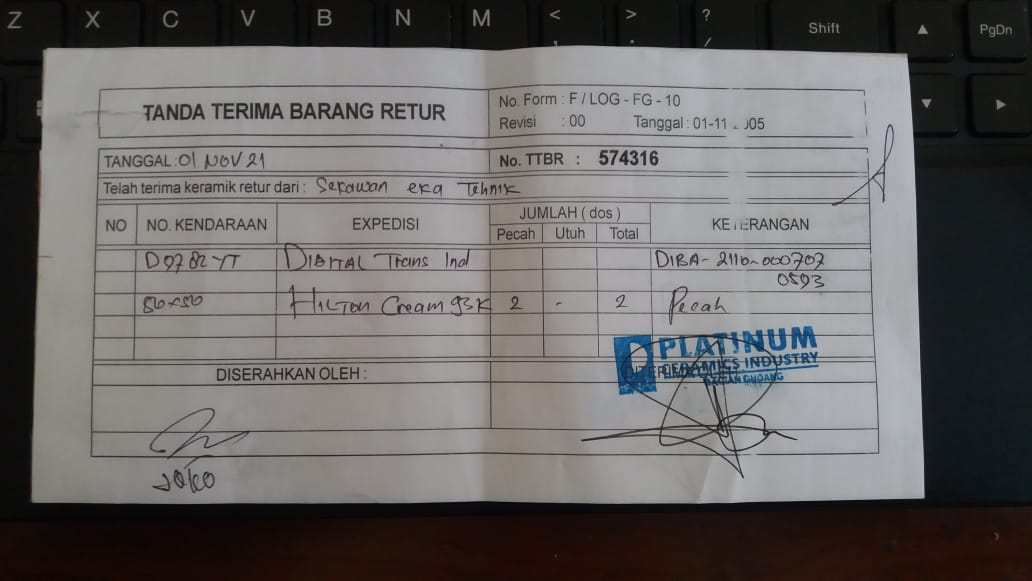 Z X C V B N M < , > . ? / Shift ▲ PgDn
▼ ►
TANDA TERIMA BARANG RETUR
No. Form : F / LOG - FG - 10
Revisi : 00 Tanggal : 01-11 005
TANGGAL : 01 NOV 21
No. TTBR : 574316
Telah terima keramik retur dari : Sekawan eka Tehnik
NO NO. KENDARAAN EXPEDISI JUMLAH ( dos ) KETERANGAN
Pecah Utuh Total
D9782YT DIGITAL Trans Ind DIBA- 2110-000707
0593
50x50 HILTON Cream 93K 2 - 2 Pecah
PLATINUM
CERAMICS INDUSTRY
BAGIAN GUDANG
DISERAHKAN OLEH :
JOKO